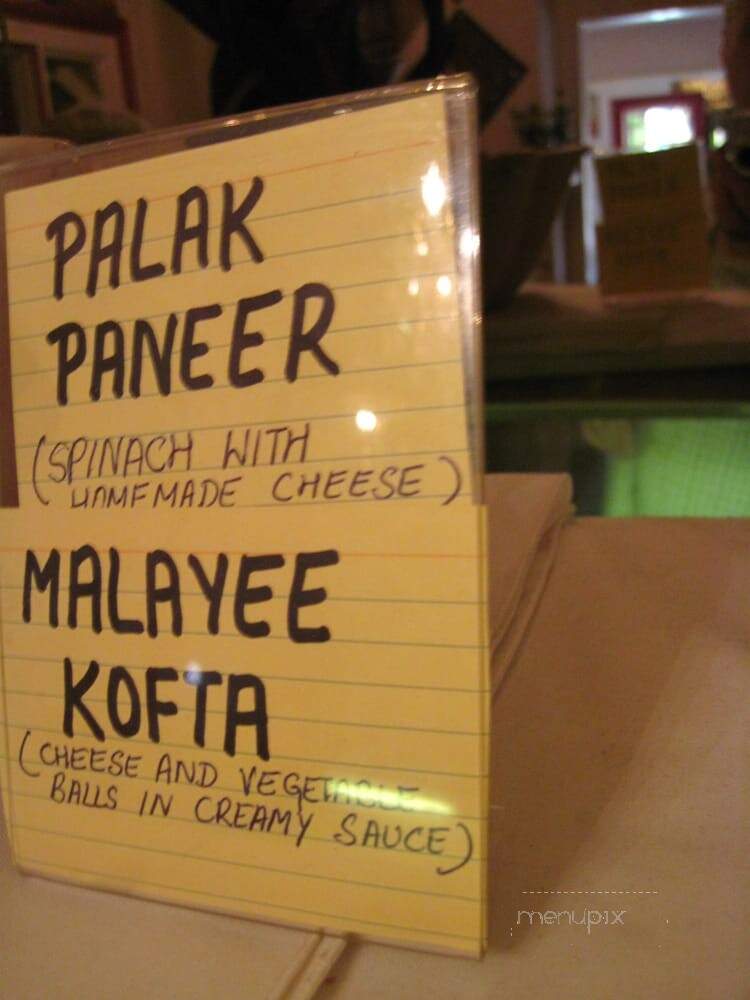 PALAK
PANEER
(SPINACH WITH
HOMEMADE CHEESE)
MALAYEE
KOFTA
(CHEESE AND VEGETABLE
BALLS IN CREAMY SAUCE)
menupix